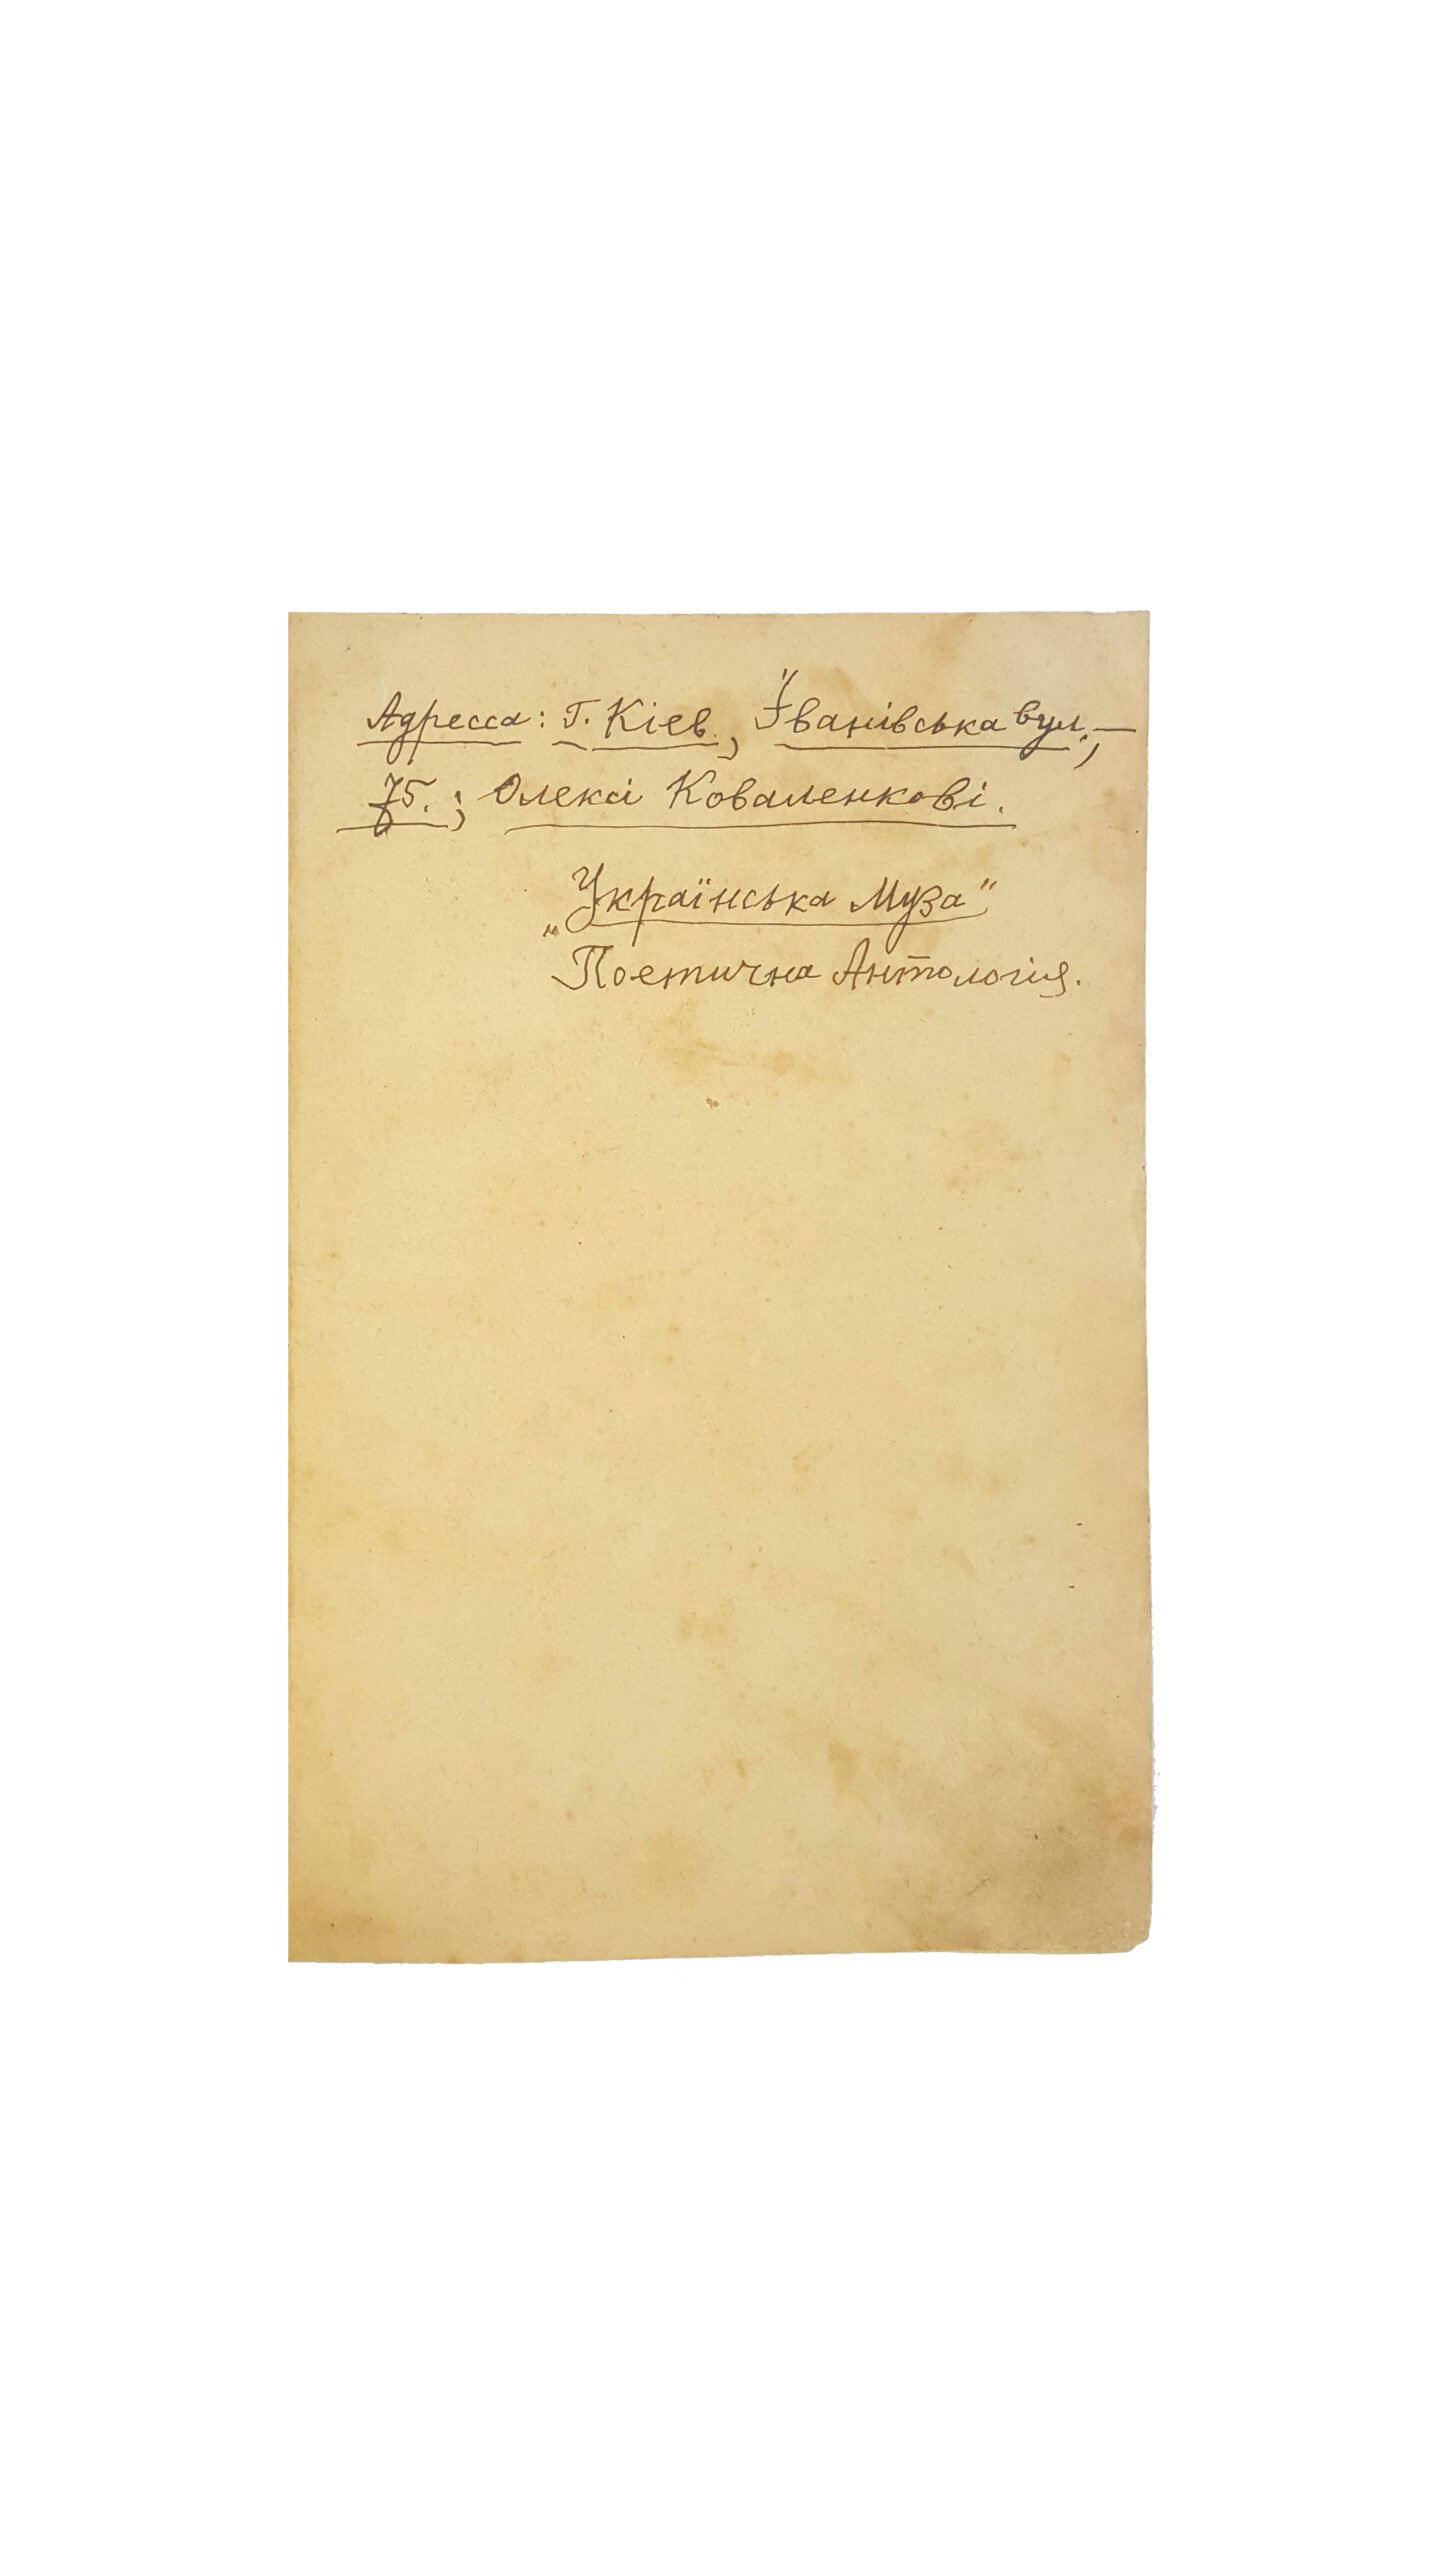 Адресса: Г. Кіев., Іванівська вул., —
75.; Олексі Коваленкові.
„Українська Муза"
Поетична Антологія.